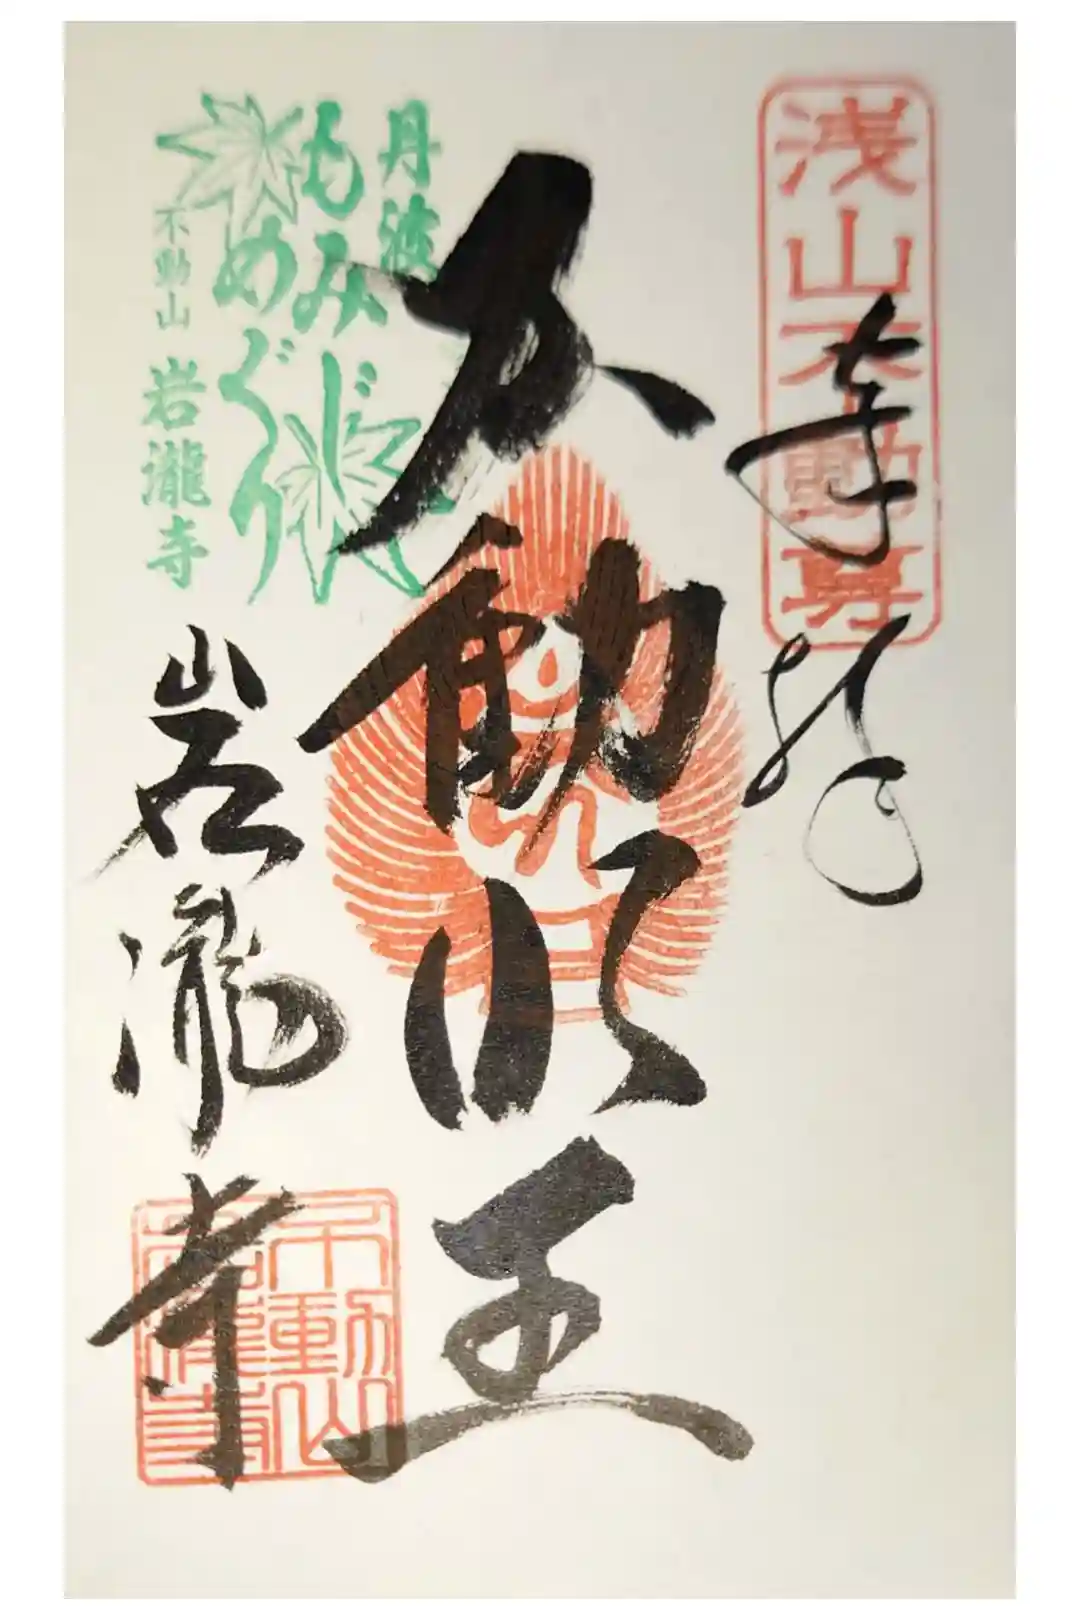 浅山不動尊
奉拝
不動明王
丹波
もみじ
めぐり
不動山 岩瀧寺
岩瀧寺
不動山
岩瀧寺